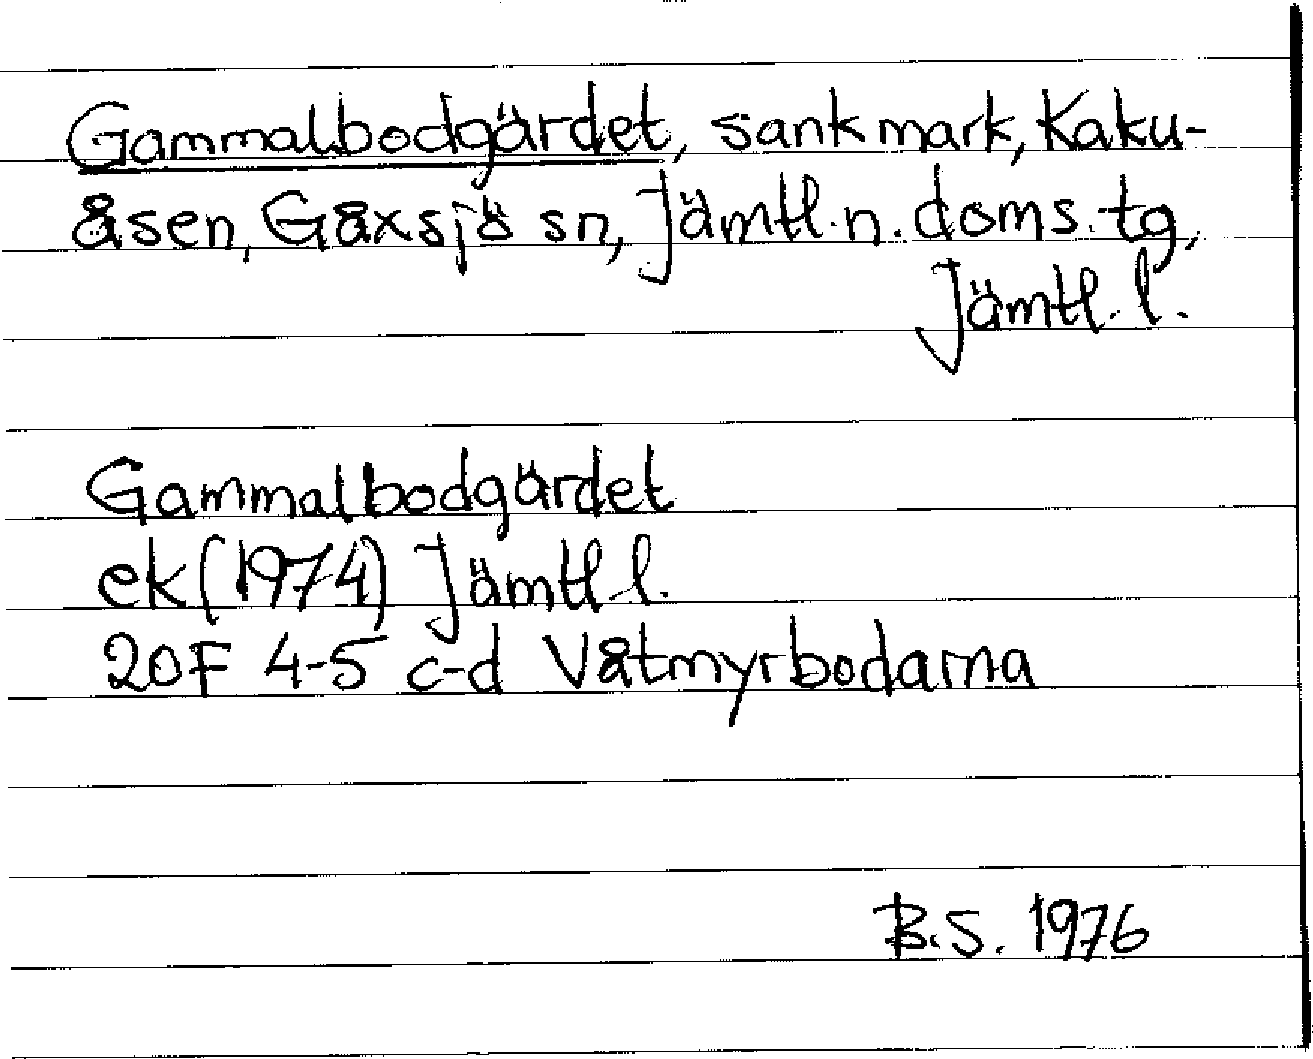 Gammalbodgärdet, sank mark, Kaku-
åsen, Gåxsjö sn, Jämtl. n. doms. tg,
Jämtl. l.
Gammalbodgärdet
ek (1974) Jämtl. l.
20F 4-5 c-d Våtmyrbodarna
B.S. 1976